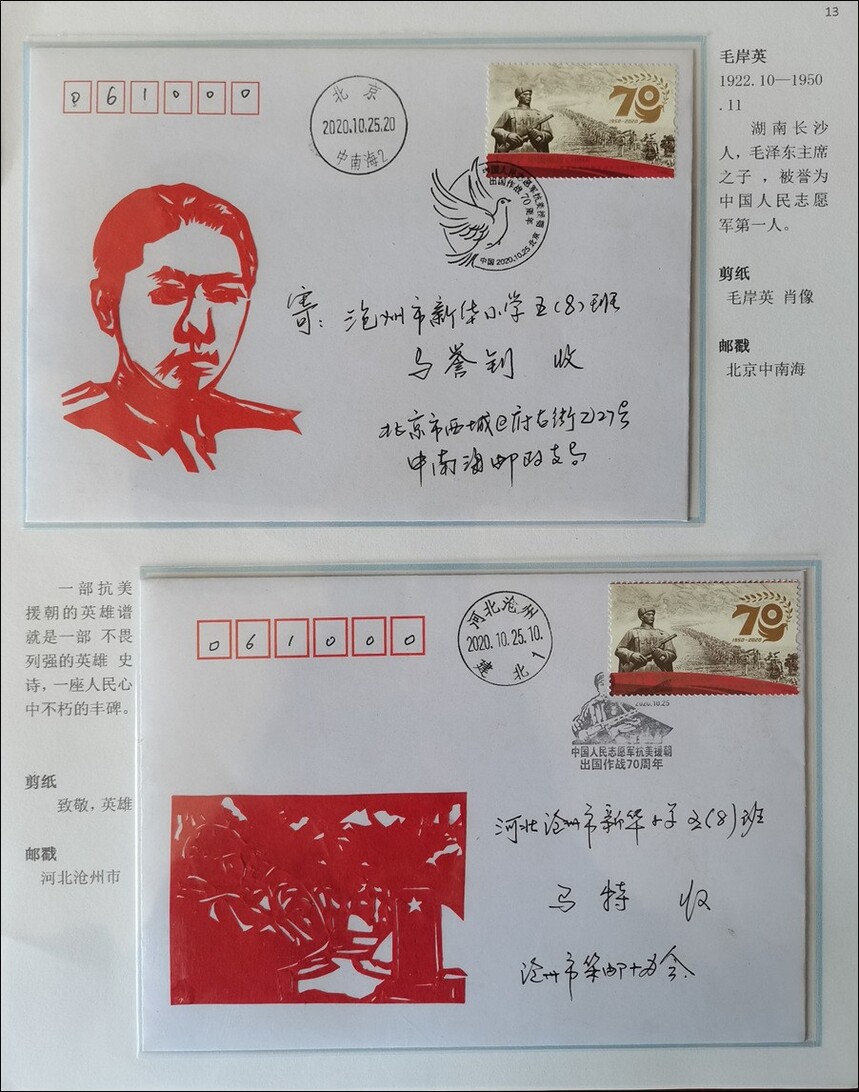 13
毛岸英
1922.10—1950
.11
湖南长沙
人，毛泽东主席
之子 ，被誉为
中国人民志愿
军第一人。
剪纸
毛岸英 肖像
邮戳
北京中南海
061000
北京
2020.10.25.20
中南海2
70
1950-2020
中国人民志愿军抗美援朝
出国作战70周年
中国 2020.10.25 北京
寄：沧州市新华小学五(8)班
马誉钊 收
北京市西城区府右街乙27号
中南海邮政支局
一部抗美
援朝的英雄谱
就是一部 不畏
列强的英雄 史
诗，一座人民心
中不朽的丰碑。
剪纸
致敬，英雄
邮戳
河北沧州市
061000
河北沧州
2020.10.25.10.
建北1
70
1950-2020
2020.10.25
中国人民志愿军抗美援朝
出国作战70周年
河北沧州市新华小学五(8)班
马特 收
沧州市集邮协会